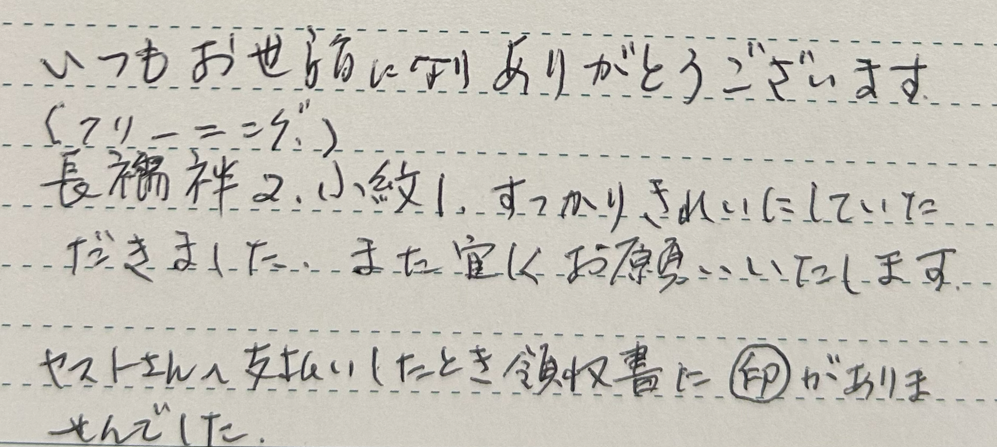 いつもお世話になりありがとうございます
(クリーニング)
長襦袢2、小紋1、すっかりきれいにしていた
だきました、また宜しくお願いいたします。
ヤストさんへ支払いしたとき領収書に㊞がありま
せんでした。